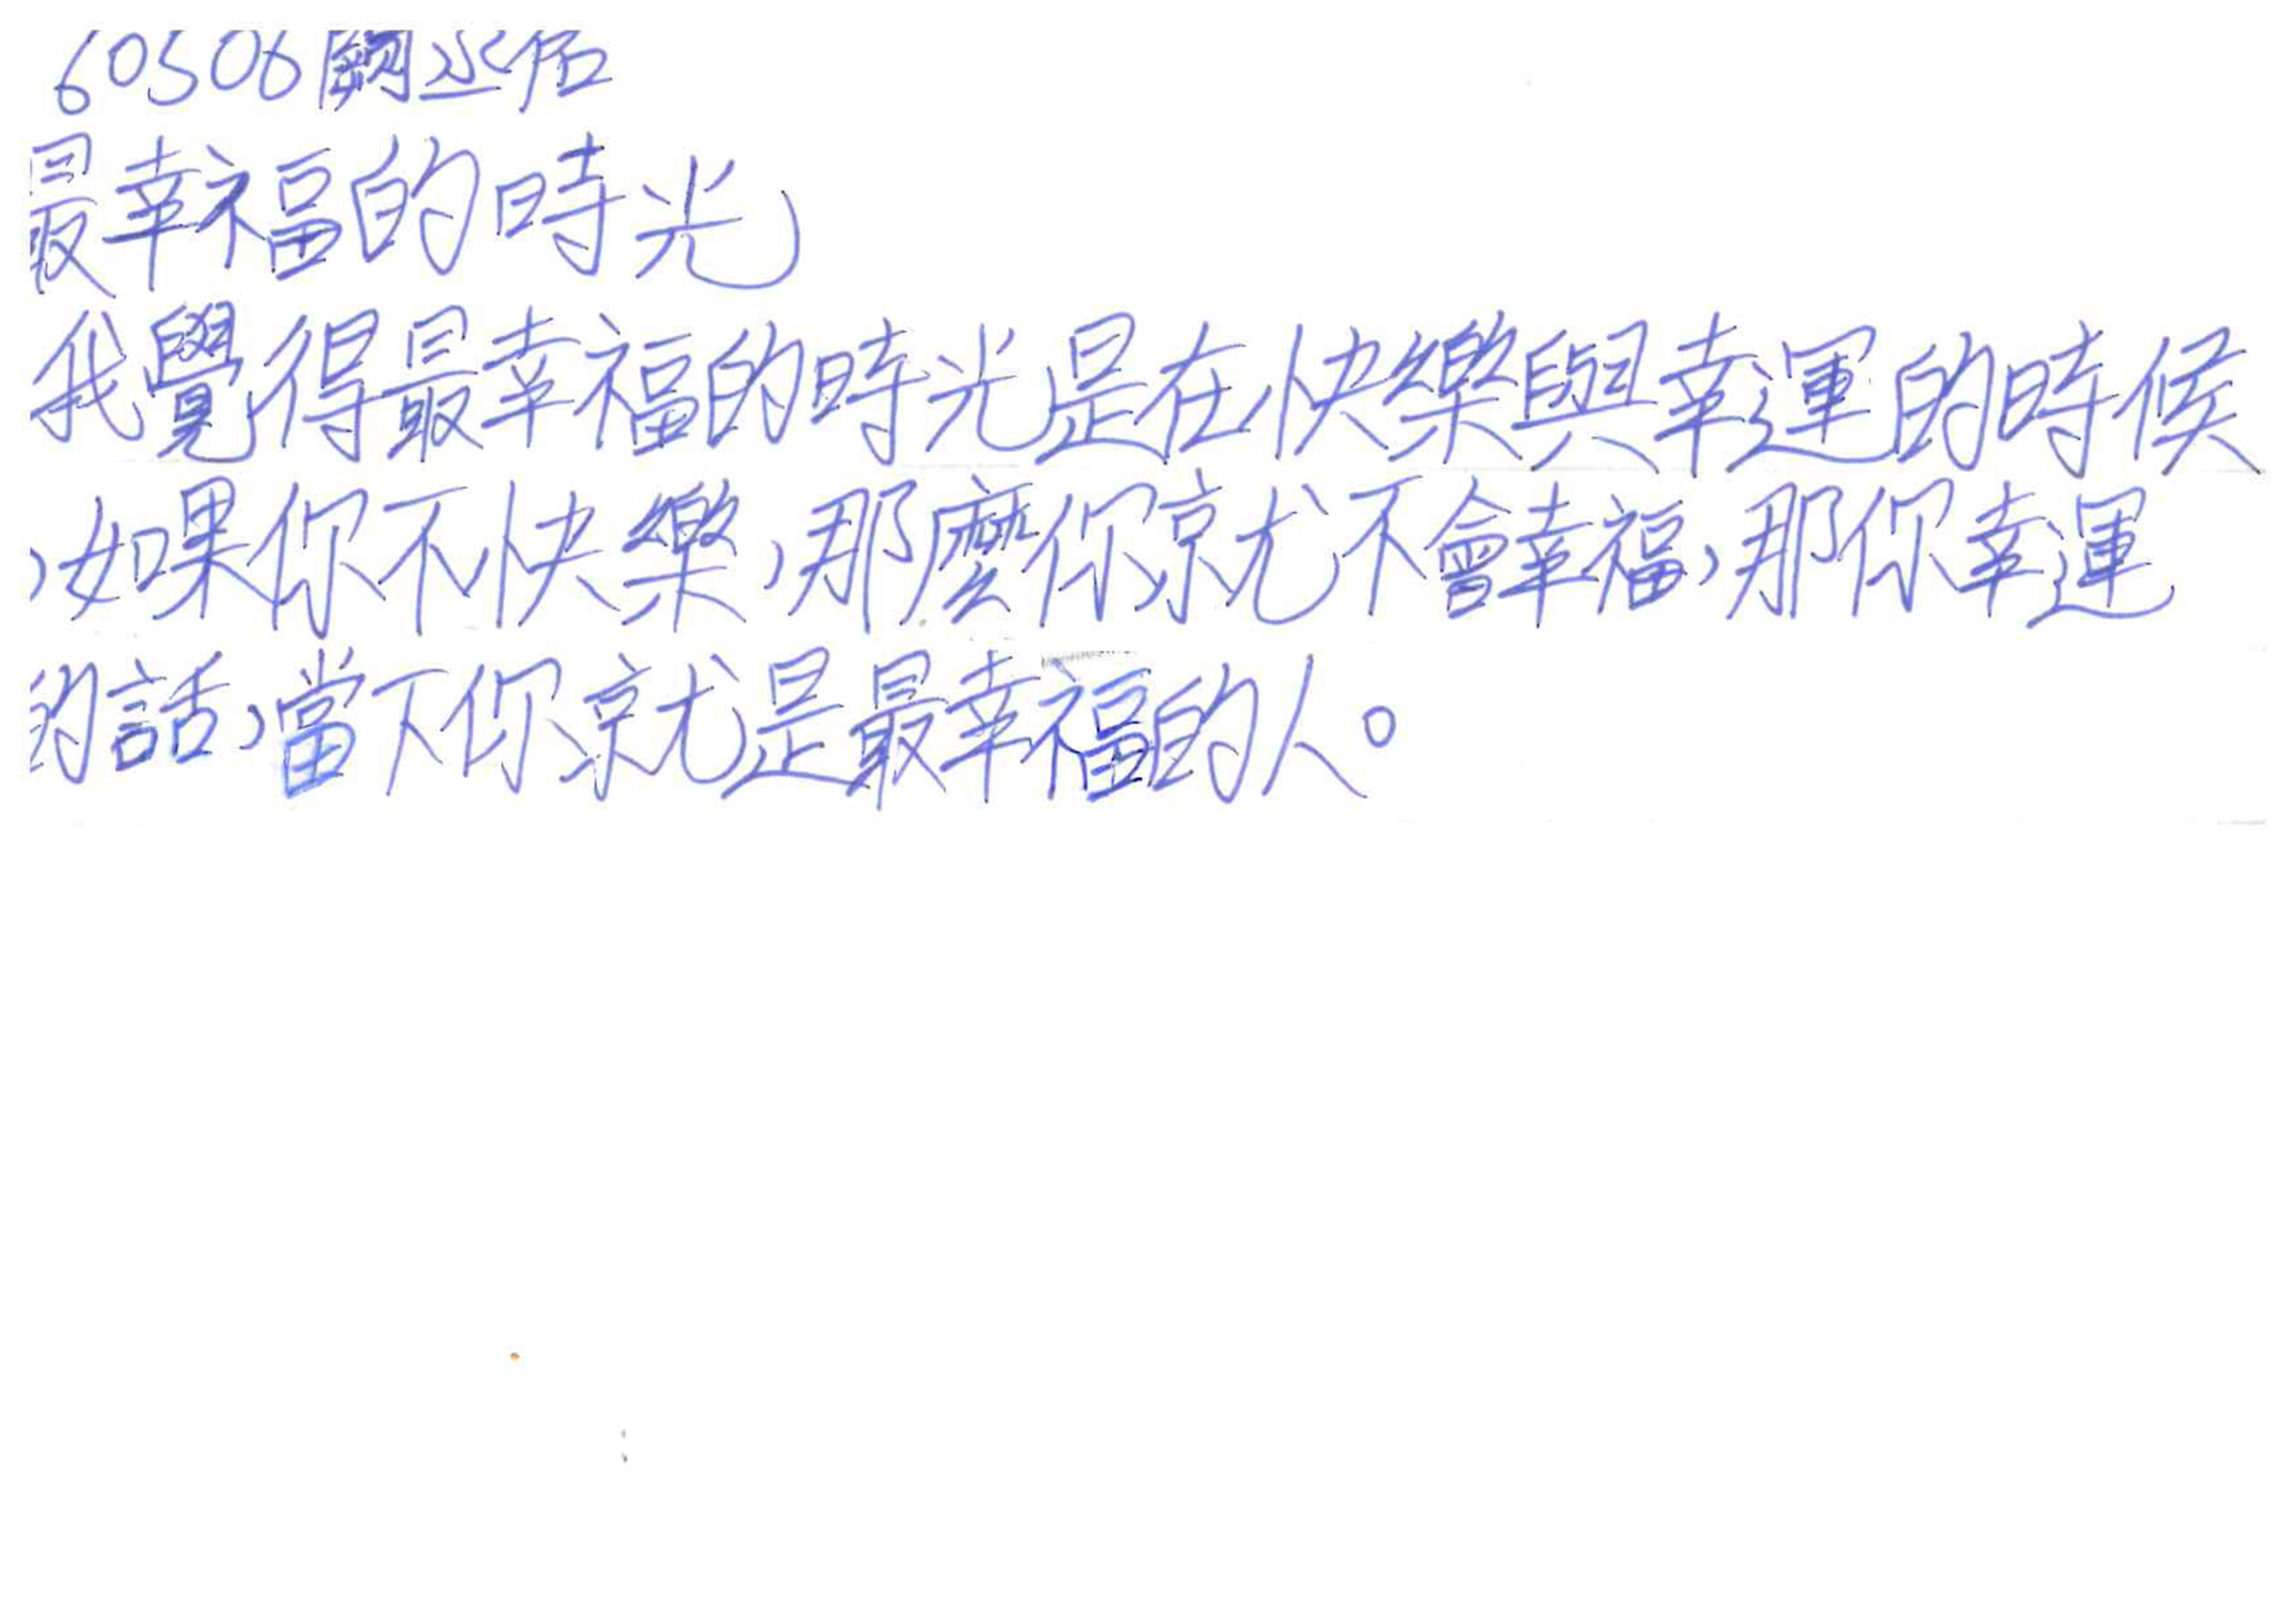 60506 闕丞佑
最幸福的時光
我覺得最幸福的時光是在快樂與幸運的時候
,如果你不快樂,那麼你就不會幸福,那你幸運
的話,當下你就是最幸福的人。